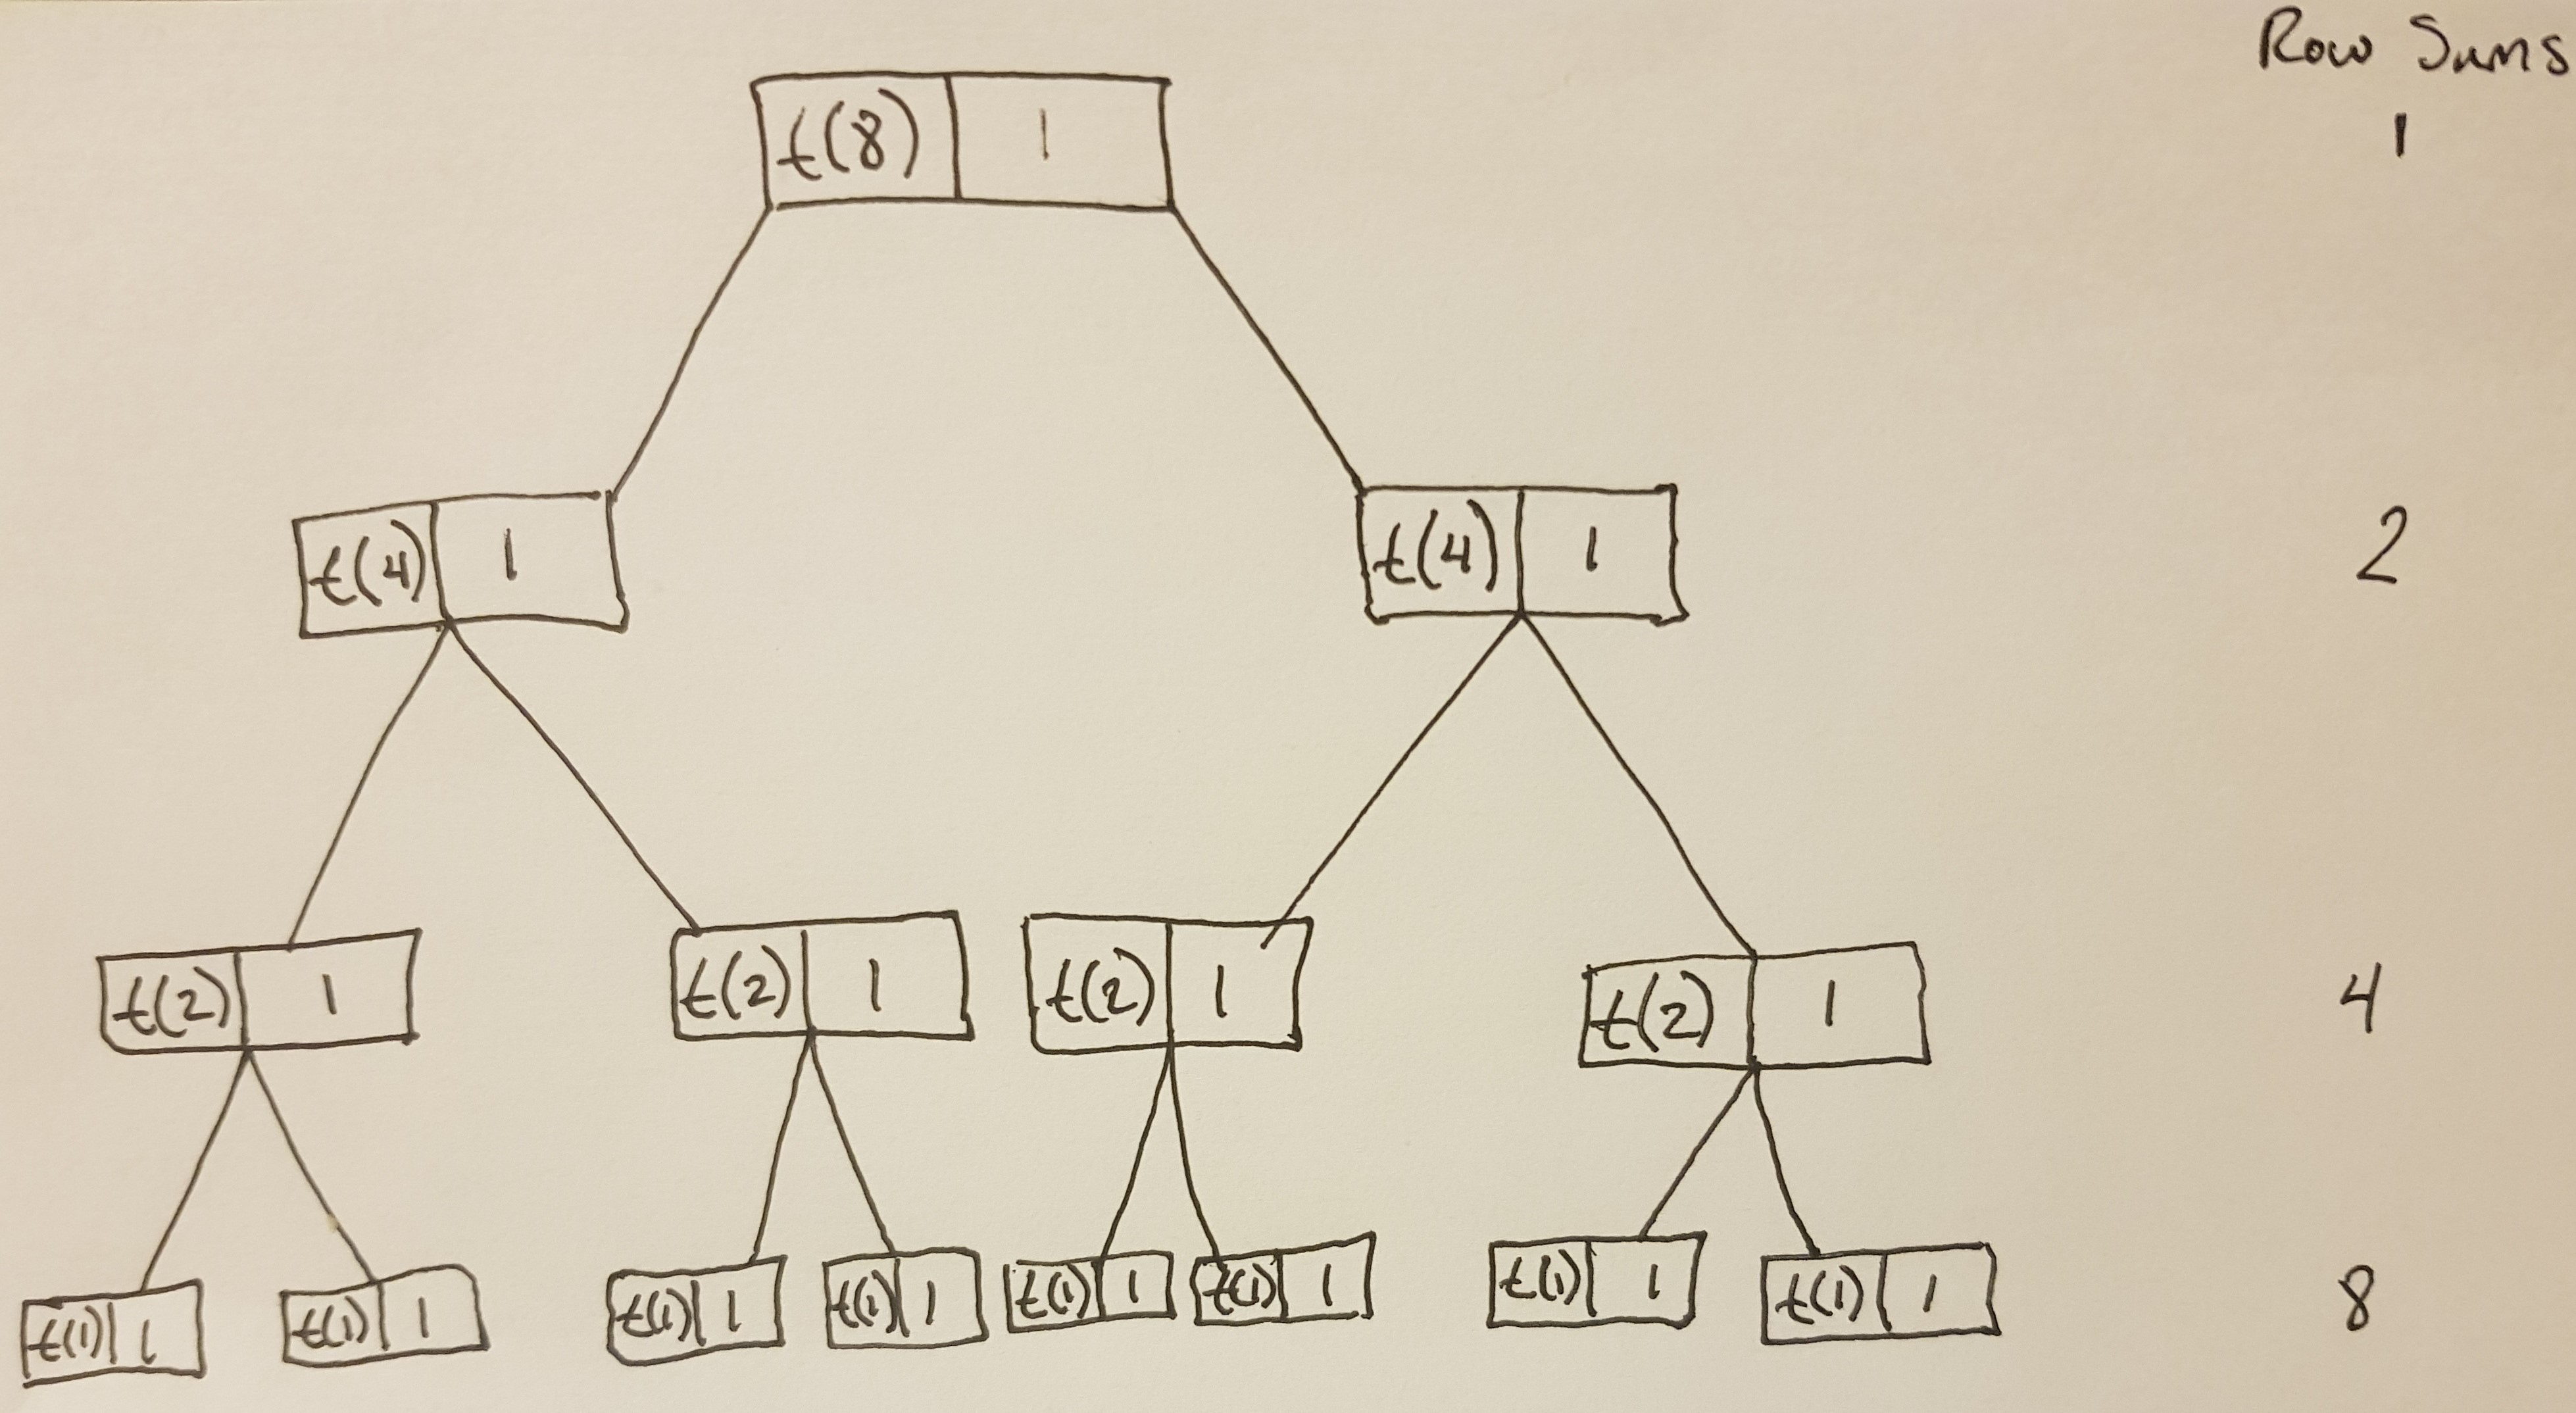 Row Sums
t(8) 1 1
t(4) 1 t(4) 1 2
t(2) 1 t(2) 1 t(2) 1 t(2) 1 4
t(1) 1 t(1) 1 t(1) 1 t(1) 1 t(1) 1 t(1) 1 t(1) 1 t(1) 1 8